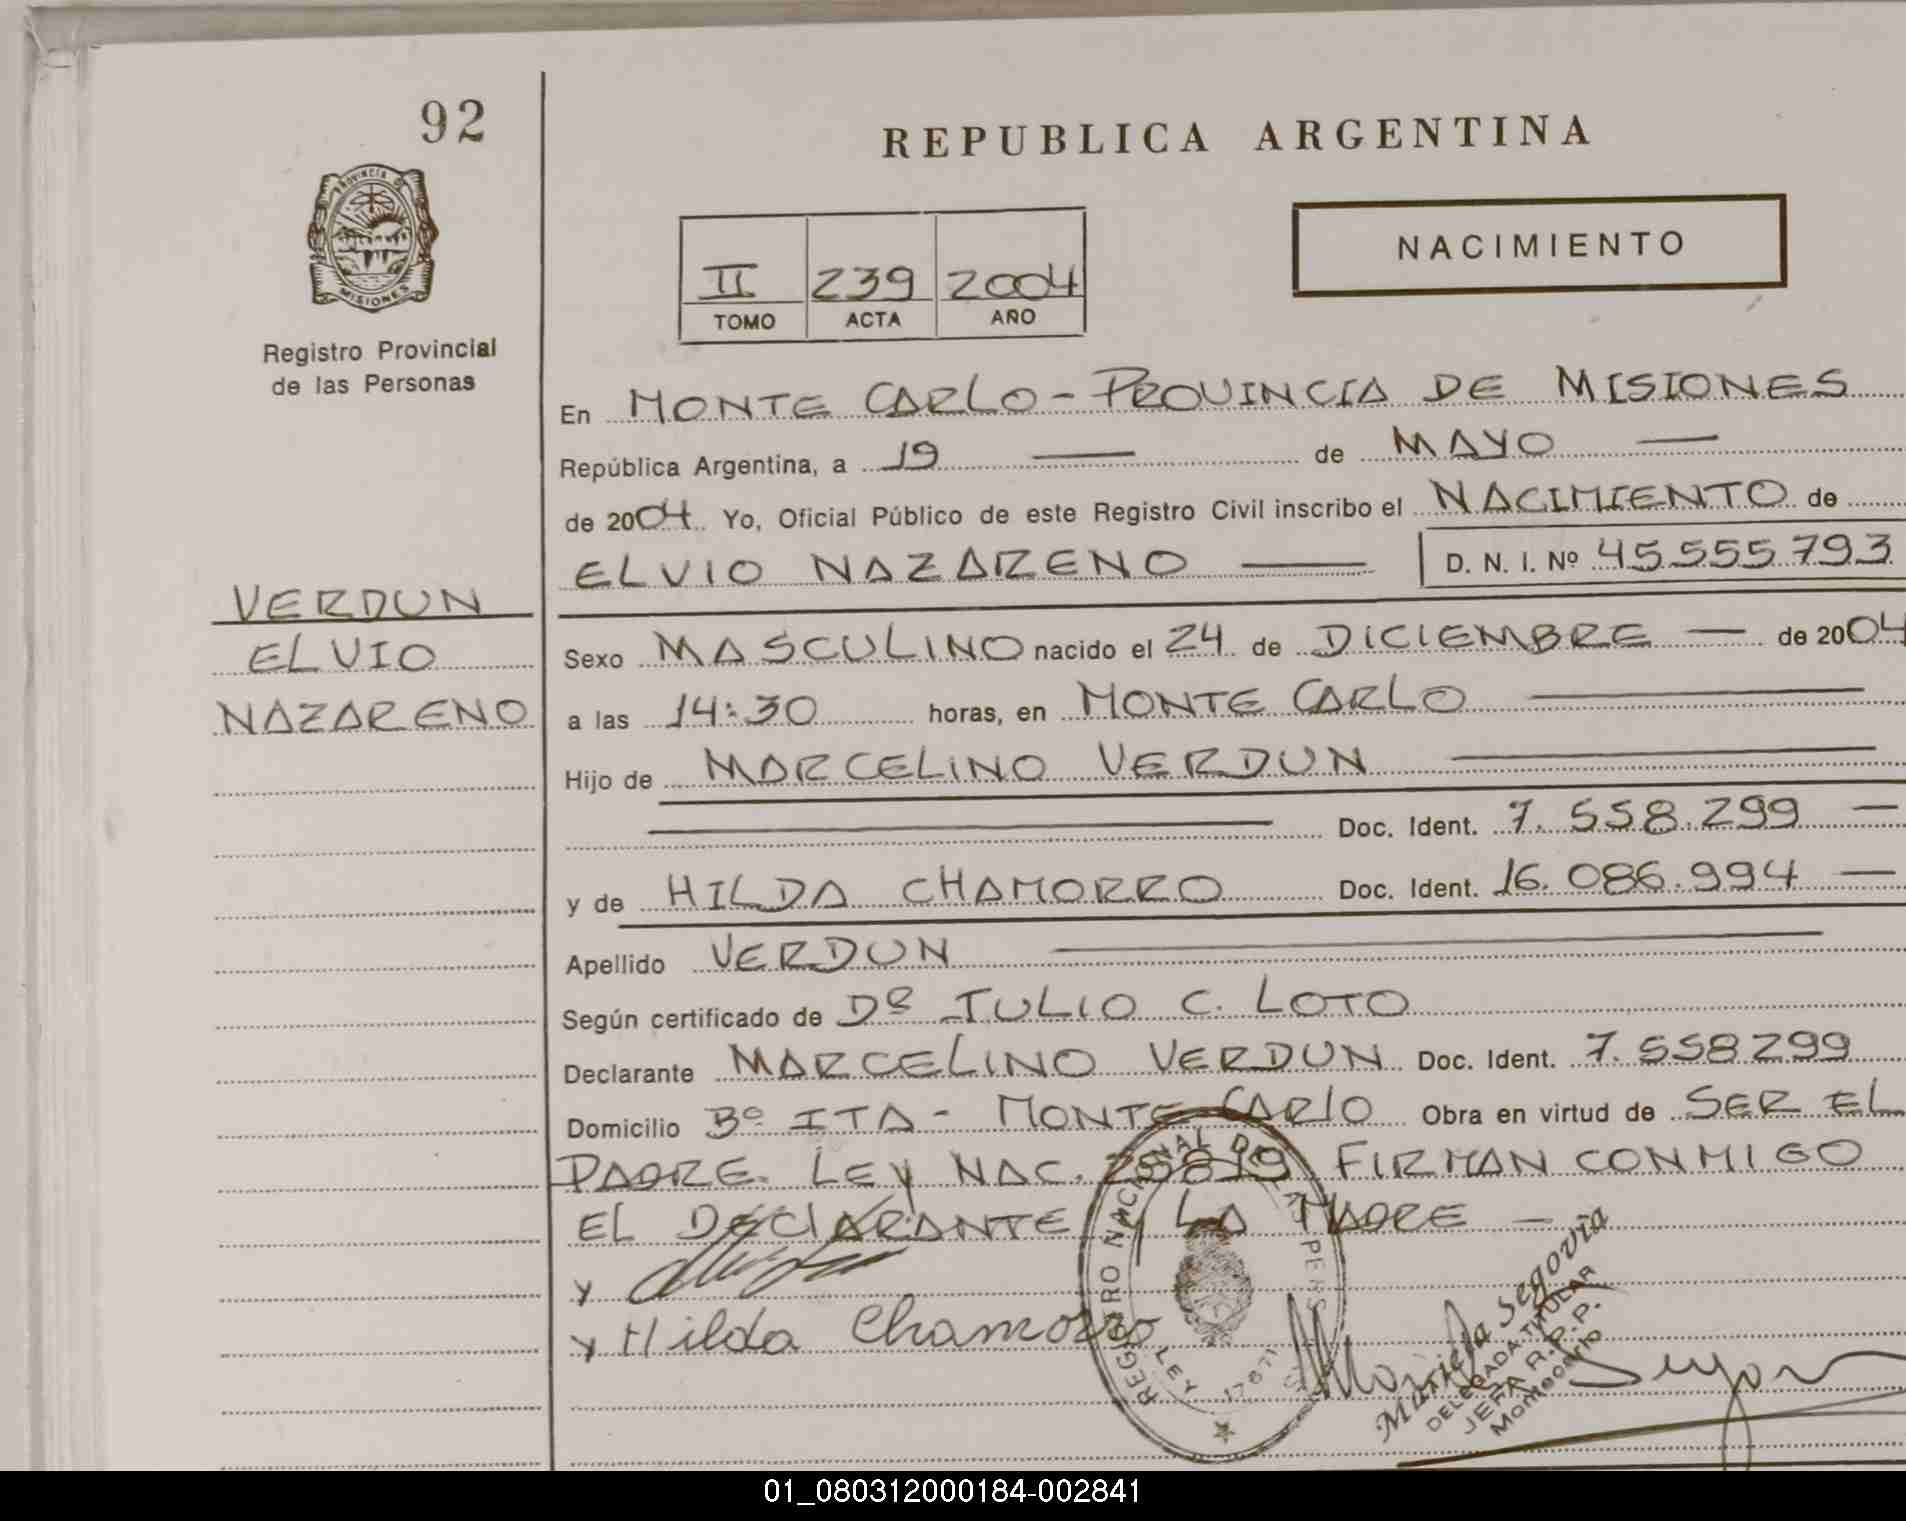 92
PROVINCIA DE
MISIONES
Registro Provincial
de las Personas
REPUBLICA ARGENTINA
NACIMIENTO
II 239 2004
TOMO ACTA AÑO
En MONTE CARLO - PROVINCIA DE MISIONES
República Argentina, a 19 — de MAYO —
de 2004 Yo, Oficial Público de este Registro Civil inscribo el NACIMIENTO de
ELVIO NAZARENO — D. N. I. Nº 45.555.793
VERDUN
ELVIO
NAZARENO
Sexo MASCULINO nacido el 24 de DICIEMBRE — de 2004
a las 14:30 horas, en MONTE CARLO —
Hijo de MARCELINO VERDUN —
— Doc. Ident. 7.558.299 —
y de HILDA CHAMORRO Doc. Ident. 16.086.994 —
Apellido VERDUN —
Según certificado de Dº JULIO C. LOTO
Declarante MARCELINO VERDUN Doc. Ident. 7.558299
Domicilio Bº ITA - MONTE CARlO Obra en virtud de SER EL
PADRE. LEy NAC. 25819 FIRMAN CONMIGO
EL DEClARANTE y LA MADRE —
y
y Hilda Chamorro
REGISTRO NACIONAL DE LAS PERS
LEY 17671
Mariela Segovia
DELEGADA TITULAR
JEFA R.P.P.
Montecarlo
01_080312000184-002841